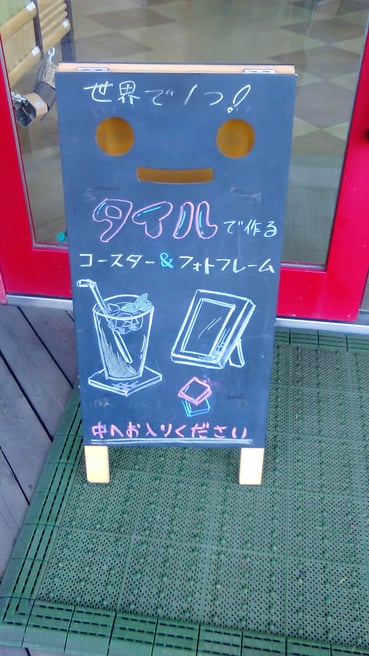 世界で1つ!
タイルで作る
コースター&フォトフレーム
中へお入りください